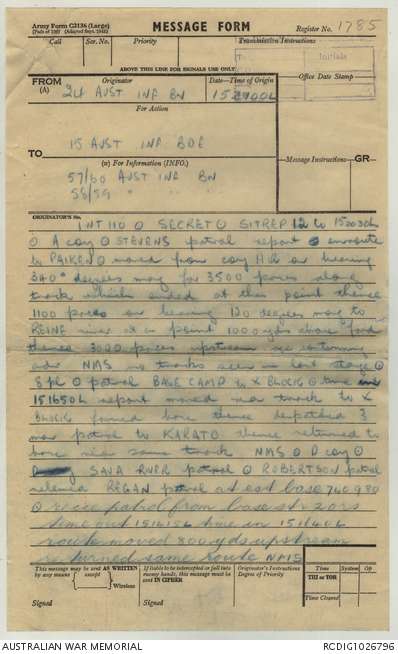 Army Form C2136 (Large)
MESSAGE FORM
Register No. 1785
Call
Ser. No.
Priority
Transmission Instructions
ABOVE THIS LINE FOR SIGNALS USE ONLY
Initials
FROM
(A)
Originator
Date—Time of Origin
Office Date Stamp
24 AUST INF BN
For Action
TO
15 AUST INF BDE
(W) For Information (INFO.)
Message Instructions
GR
57/60 AUST INF BN
58/59 " " "
ORIGINATOR'S No.
INT 110 O SECRET O SITREP 12 to
O A coy O STEVENS patrol report O enroute
to PAIKEN O moved from coy HQ on bearing
340° degrees mag for 3500 paces along
track which ended at this point thence
1100 paces on bearing 120 degrees mag to
REINE river at a point 1000 yds above ford
thence 3000 paces upstream
NMS no tracks seen in last stage O
8 pl O patrol BASE CAMP to X BLOCK O time in
151650L report moved via track to X
BLOCK formed base thence despatched 3
man patrol to KARATO thence returned to
base near same track NMS O D coy O
SAUA RIVER patrol O ROBERTSON patrol
relieved REGAN patrol at east base 740980
O recce patrol from base str 2 ORs
time out time in 151140L
route moved 800 yds upstream
returned same route NMS
This message may be sent AS WRITTEN
by any means
except
Wireless
If liable to be intercepted or fall into
enemy hands, this message must be
sent IN CIPHER
Originator's Instructions
Degree of Priority
Time
System
Op
THI or TOR
Time Cleared
Signed
Signed
AUSTRALIAN WAR MEMORIAL
RCDIG1026796